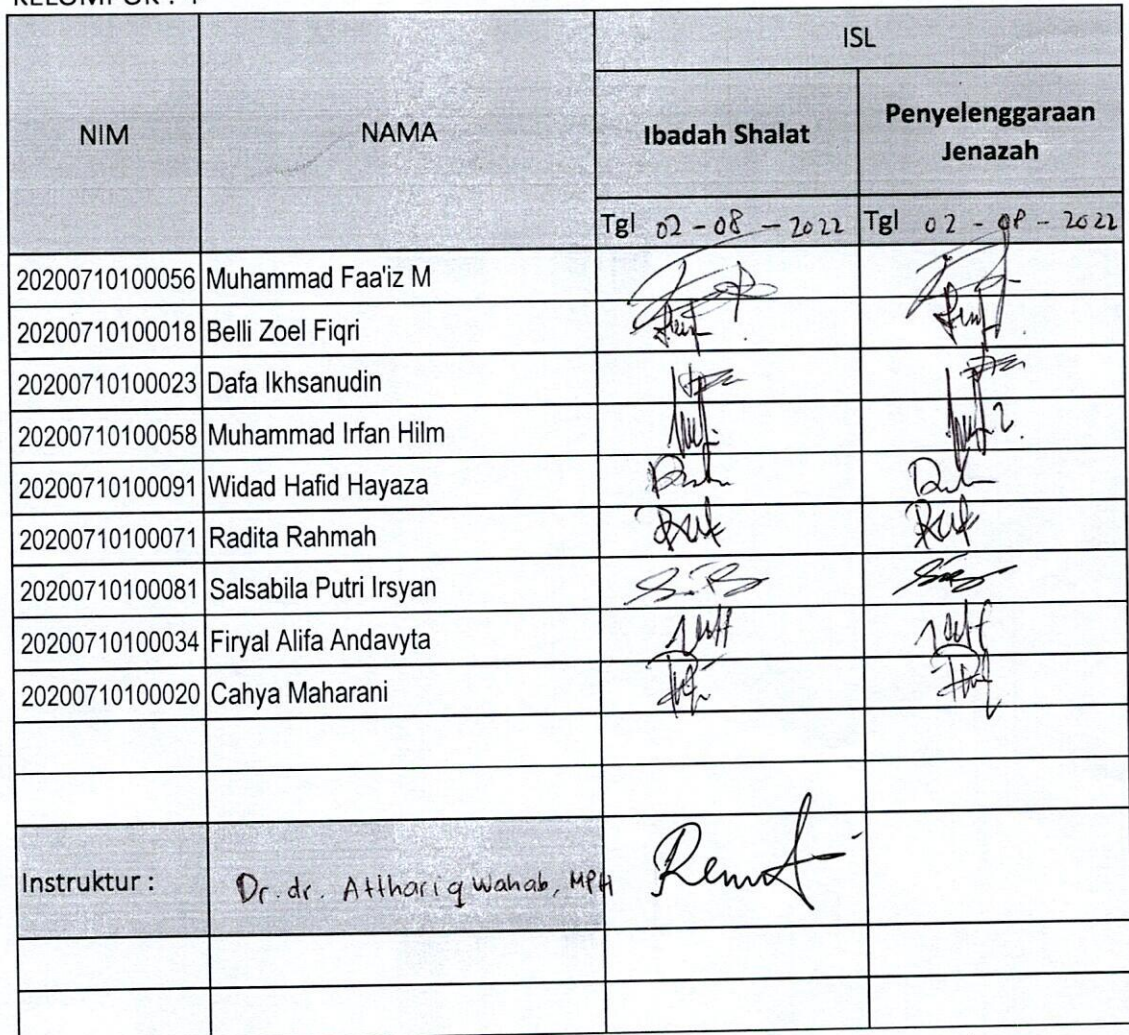 KELOMPOK :
ISL
NIM
NAMA
Ibadah Shalat
Penyelenggaraan
Jenazah
Tgl 02 - 08 - 2022
Tgl 02 - 08 - 2022
20200710100056 Muhammad Faa'iz M
20200710100018 Belli Zoel Fiqri
20200710100023 Dafa Ikhsanudin
20200710100058 Muhammad Irfan Hilm
20200710100091 Widad Hafid Hayaza
20200710100071 Radita Rahmah
20200710100081 Salsabila Putri Irsyan
20200710100034 Firyal Alifa Andavyta
20200710100020 Cahya Maharani
Instruktur : Dr. dr. Atthariq Wahab, MPH